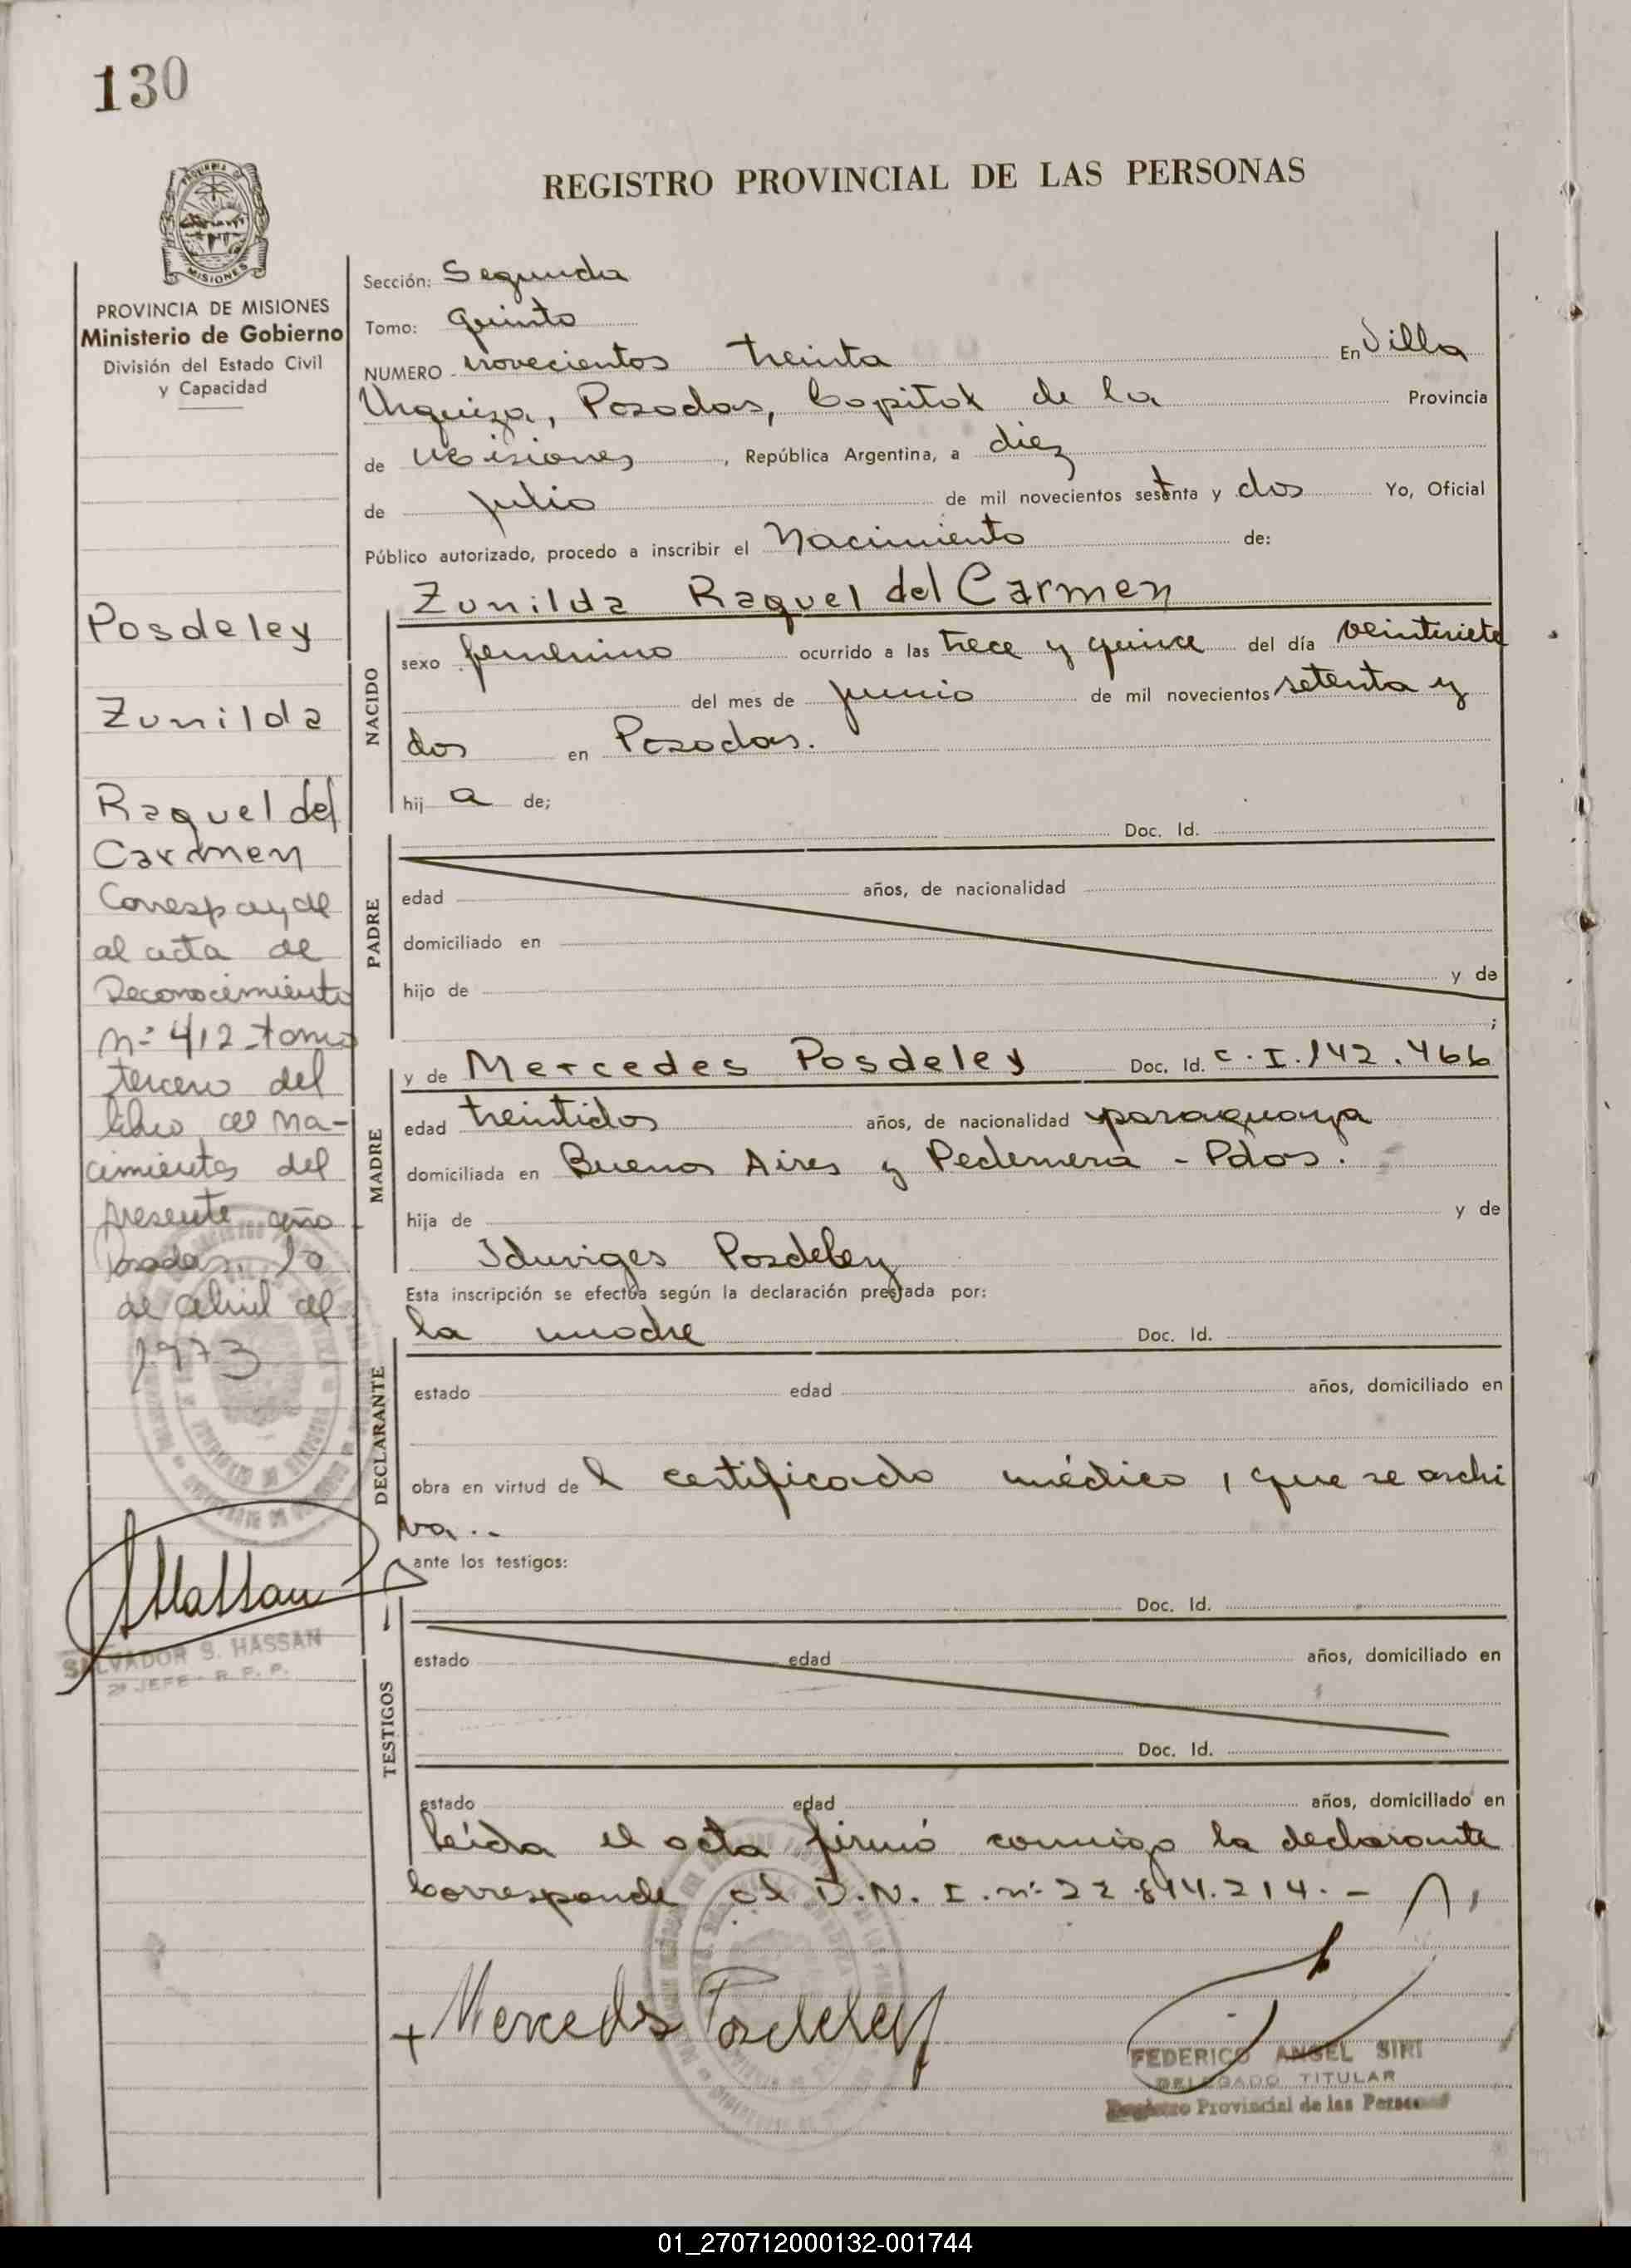 130
REGISTRO PROVINCIAL DE LAS PERSONAS
MISIONES
PROVINCIA DE MISIONES
Ministerio de Gobierno
División del Estado Civil
y Capacidad
Posdeley
Zunilda
Raquel del
Carmen
Corresponde
al acta de
Reconocimiento
nº 412 tomo
tercero del
libro de Na-
cimientos del
presente año
Posadas, 10
de abril de
1973
SALVADOR S. HASSAN
2º JEFE - R. P. P.
Sección: Segunda
Tomo: quinto
NUMERO novecientos treinta En Villa
Urquiza, Posadas, Capital de la Provincia
de Misiones, República Argentina, a diez
de julio de mil novecientos setenta y dos Yo, Oficial
Público autorizado, procedo a inscribir el Nacimiento de:
Zunilda Raquel del Carmen
NACIDO
sexo femenino ocurrido a las trece y quince del día veintisiete
del mes de junio de mil novecientos setenta y
dos en Posadas.
hij a de;
Doc. Id.
PADRE
edad años, de nacionalidad
domiciliado en
hijo de y de
;
y de Mercedes Posdeley Doc. Id. C.I. 142.466
MADRE
edad treintidos años, de nacionalidad paraguaya
domiciliada en Buenos Aires y Pedernera - Pdas.
hija de y de
Iduviges Posdeley
Esta inscripción se efectúa según la declaración prestada por:
la madre Doc. Id.
DECLARANTE
estado edad años, domiciliado en
obra en virtud de l certificado médico, que se archi
va..
ante los testigos:
Doc. Id.
TESTIGOS
estado edad años, domiciliado en
Doc. Id.
estado edad años, domiciliado en
leída el acta firmó conmigo la declarante
Corresponde al D.N.I. nº 22.844.214.-
+ Mercedes Posdeley
FEDERICO ANGEL SIRI
DELEGADO TITULAR
Registro Provincial de las Personas
01_270712000132-001744